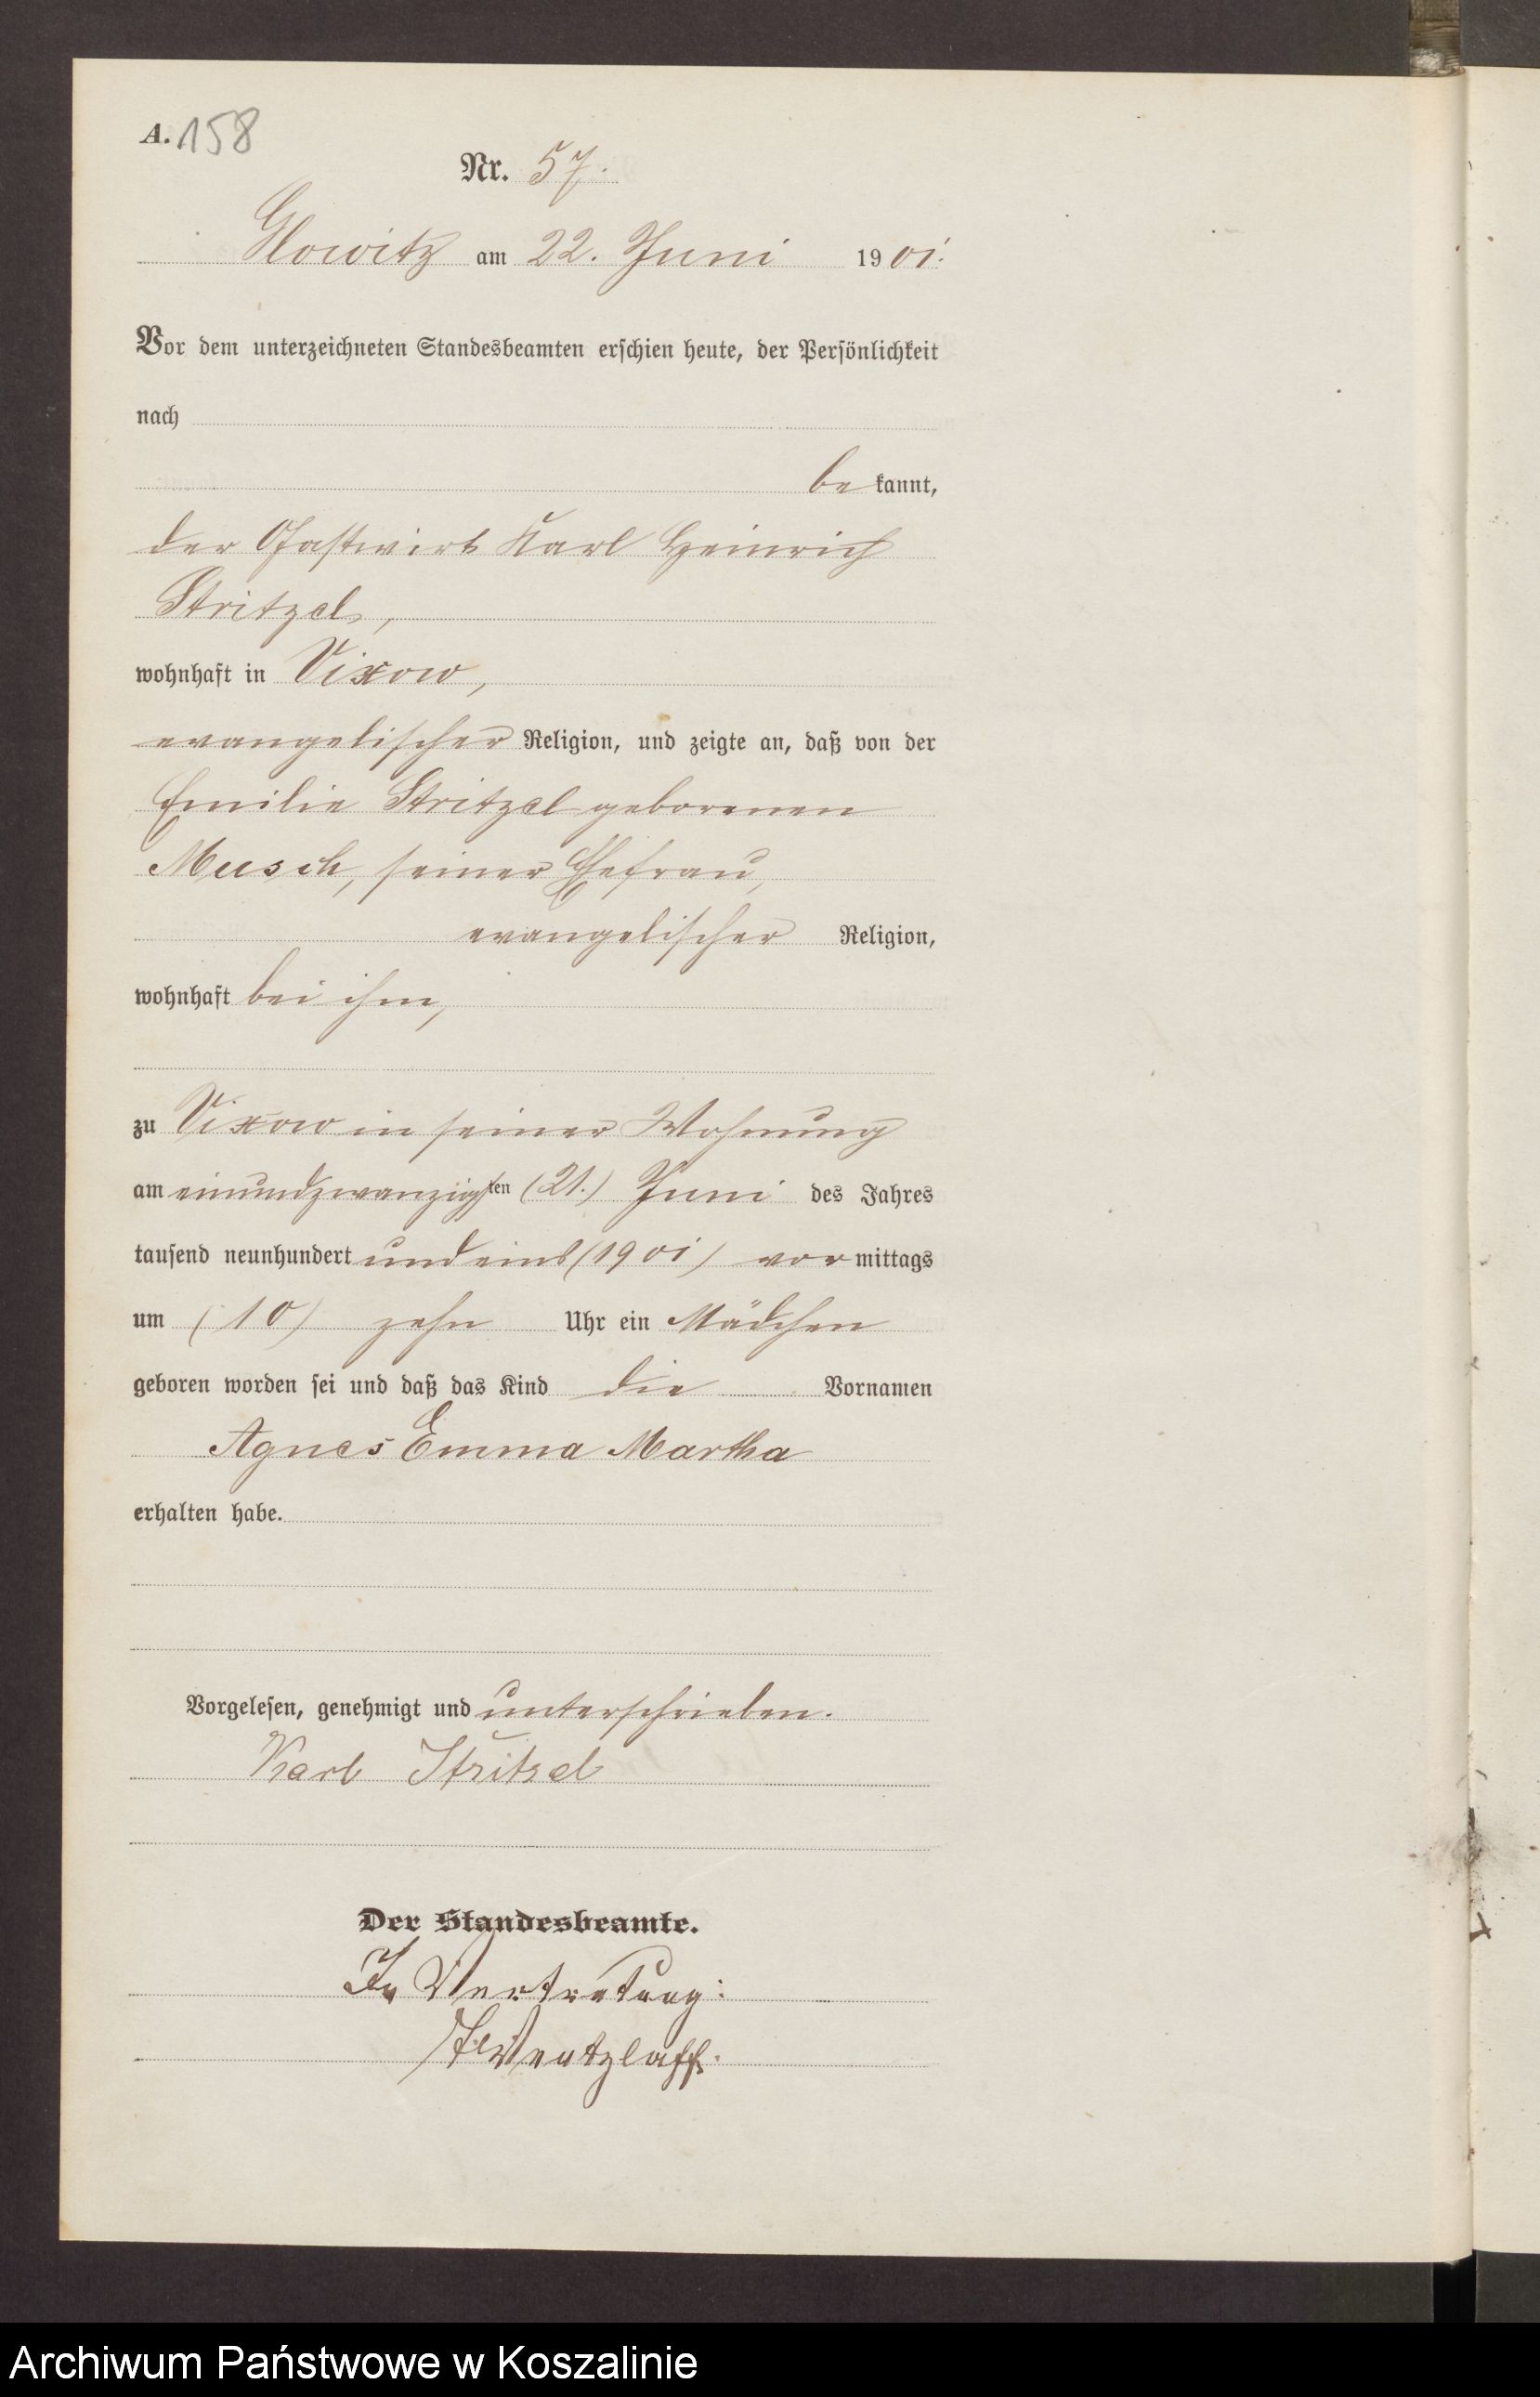 A. 158
Nr. 57.
Glowitz am 22. Juni 1901.
Vor dem unterzeichneten Standesbeamten erschien heute, der Persönlichkeit
nach
be kannt,
der Gastwirt Karl Heinrich
Stritzel,
wohnhaft in Vixow,
evangelischer Religion, und zeigte an, daß von der
Emilie Stritzel geborenen
Musch, seiner Ehefrau,
evangelischer Religion,
wohnhaft bei ihm,
zu Vixow in seiner Wohnung
am einundzwanzigsten (21.) Juni des Jahres
tausend neunhundert und eins (1901) vormittags
um (10) zehn Uhr ein Mädchen
geboren worden sei und daß das Kind die Vornamen
Agnes Emma Martha
erhalten habe.
Vorgelesen, genehmigt und unterschrieben.
Karl Stritzel
Der Standesbeamte.
In Vertretung:
Wentzlaff.
Archiwum Państwowe w Koszalinie